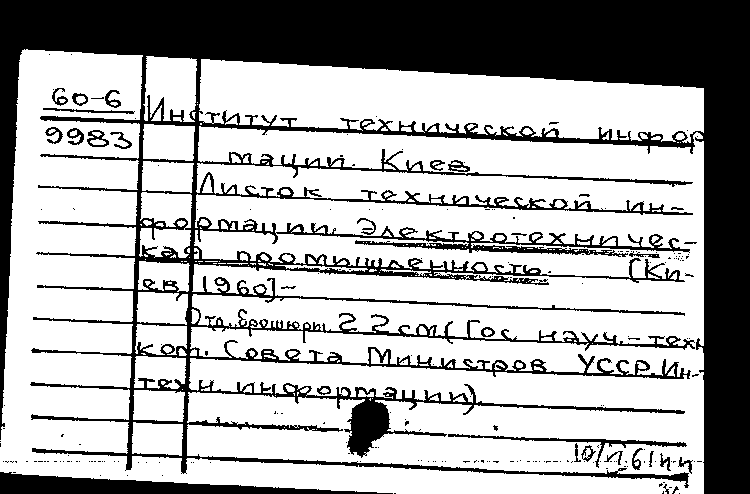 60-6
9983
Институт технической инфор
мации. Киев.
Листок технической ин-
формации. Электротехничес-
кая промышленность. [Ки-
ев, 1960]-
Отд. брошюры. 22см (Гос. науч.-техн
ком. Совета Министров УССР. Ин-т
техн. информации).